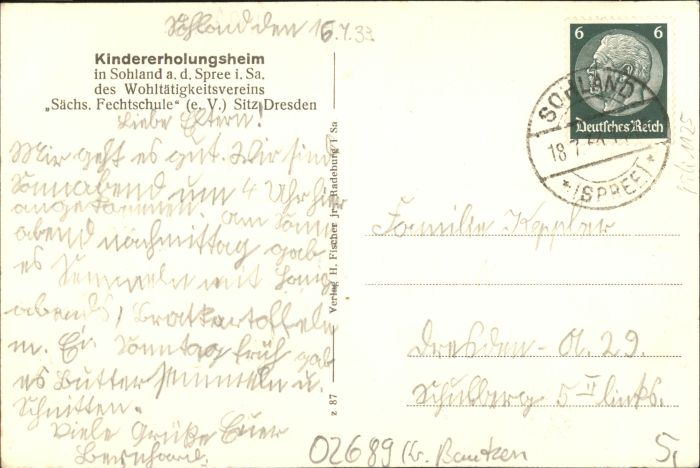 Sohland den 16.7.33
Kindererholungsheim
in Sohland a. d. Spree i. Sa.
des Wohltätigkeitsvereins
„Sächs. Fechtschule“ (e. V.) Sitz Dresden
Liebe Eltern!
Mir geht es gut. Wir sind
Sonnabend um 4 Uhr hier
angekommen. Am Sonn
abend nachmittag gab
es Semmeln mit Honig
abends Bratkartoffeln
m. Ei. Sonntag früh gab
es Buttersemmeln u.
Schnitten.
Viele Grüße Euer
Bernhard.
z 87 Verlag H. Fischer jr., Radeburg i. Sa
6 6
Deutsches Reich
SOHLAND
18.7.
* (SPREE) *
Familie Keppler
Dresden-A. 29.
Schulberg 5 II links.
02689 Kr. Bautzen
5,